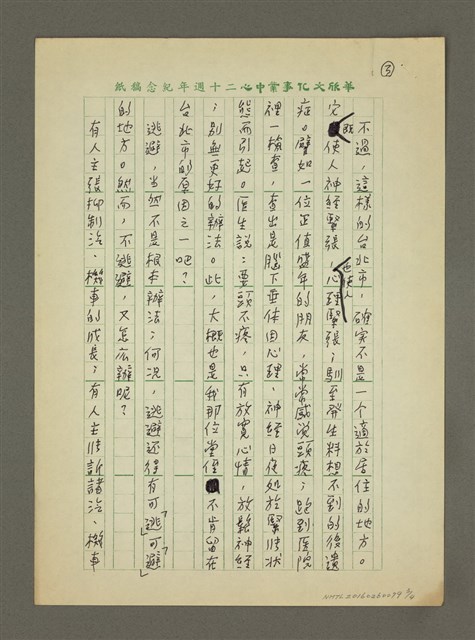 ③
華欣文化事業中心二十週年紀念稿紙
不過，這樣的台北市，確實不是一個適於居住的地方。
它既使人神經緊張，也使人心理緊張；馴至發生料想不到的後遺
症。譬如一位正值盛年的朋友，常常感覺頭疼；跑到醫院
裡一檢查，查出是腦下垂体因心理、神經日夜處於緊張狀
態而引起。医生說：要頭不疼，只有放寬心情，放鬆神經
；別無更好的辦法。此，大概也是我那位堂侄不肯留在
台北市的原因之一吧？
逃避，當然不是根本辦法；何況，逃避还得有可「逃」可「避」
的地方。然而，不逃避，又怎広辦呢？
有人主張抑制汽、機車的成長；有人主張訴諸汽、機車
NMTL20160260099 3/4